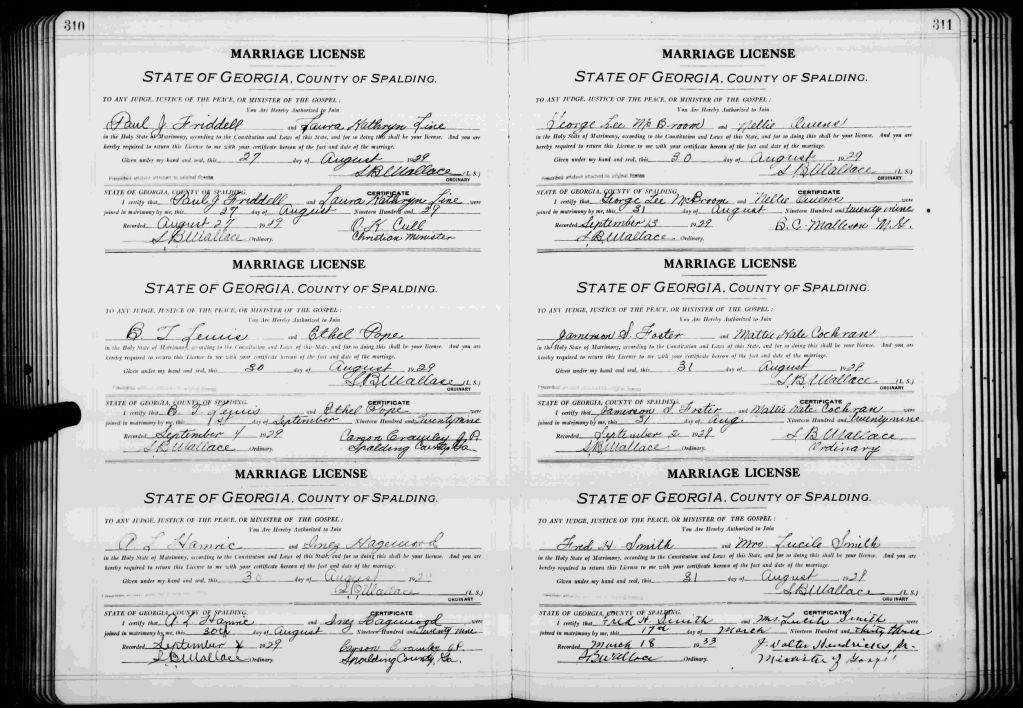 310
MARRIAGE LICENSE
STATE OF GEORGIA, COUNTY OF SPALDING.
TO ANY JUDGE, JUSTICE OF THE PEACE, OR MINISTER OF THE GOSPEL:
You Are Hereby Authorized to Join
Paul J Friddell and Laura Kathryn Line
in the Holy State of Matrimony, according to the Constitution and Laws of this State, and for so doing this shall be your license. And you are
hereby required to return this License to me with your certificate hereon of the fact and date of the marriage.
Given under my hand and seal, this 27 day of August 1929
S B Wallace (L. S.)
Prescribed affidavit attached to original license
ORDINARY
STATE OF GEORGIA, COUNTY OF SPALDING. CERTIFICATE
I certify that Paul J Friddell and Laura Kathryn Line were
joined in matrimony by me, this 27 day of August Nineteen Hundred and 29
Recorded August 27 1929 O. K. Cull
S. B. Wallace Ordinary. Christian Minister
MARRIAGE LICENSE
STATE OF GEORGIA, COUNTY OF SPALDING.
TO ANY JUDGE, JUSTICE OF THE PEACE, OR MINISTER OF THE GOSPEL:
You Are Hereby Authorized to Join
B. T Lewis and Ethel Pope
in the Holy State of Matrimony, according to the Constitution and Laws of this State, and for so doing this shall be your license. And you are
hereby required to return this License to me with your certificate hereon of the fact and date of the marriage.
Given under my hand and seal, this 30 day of August 1929
S. B. Wallace (L. S.)
ORDINARY
STATE OF GEORGIA, COUNTY OF SPALDING. CERTIFICATE
I certify that B. T Lewis and Ethel Pope were
joined in matrimony by me, this 1st day of September Nineteen Hundred and Twenty nine
Recorded September 4 1929 Carson Crawley J. P.
S B Wallace Ordinary. Spalding County Ga
MARRIAGE LICENSE
STATE OF GEORGIA, COUNTY OF SPALDING.
TO ANY JUDGE, JUSTICE OF THE PEACE, OR MINISTER OF THE GOSPEL:
You Are Hereby Authorized to Join
A L Hamric and Inez Hagewood
in the Holy State of Matrimony, according to the Constitution and Laws of this State, and for so doing this shall be your license. And you are
hereby required to return this License to me with your certificate hereon of the fact and date of the marriage.
Given under my hand and seal, this 30 day of August 1929
S. B. Wallace (L. S.)
ORDINARY
STATE OF GEORGIA, COUNTY OF SPALDING. CERTIFICATE
I certify that A L Hamric and Inez Hagewood were
joined in matrimony by me, this 30th day of August Nineteen Hundred and twenty nine
Recorded September 4 1929 Carson Crawley J.P.
S. B. Wallace Ordinary. Spalding County, Ga.
311
MARRIAGE LICENSE
STATE OF GEORGIA, COUNTY OF SPALDING.
TO ANY JUDGE, JUSTICE OF THE PEACE, OR MINISTER OF THE GOSPEL:
You Are Hereby Authorized to Join
George Lee McBroom and Nellie Owens
in the Holy State of Matrimony, according to the Constitution and Laws of this State, and for so doing this shall be your license. And you are
hereby required to return this License to me with your certificate hereon of the fact and date of the marriage.
Given under my hand and seal, this 30 day of August 1929
S. B. Wallace (L. S.)
Prescribed affidavit attached to original license
ORDINARY
STATE OF GEORGIA, COUNTY OF SPALDING. CERTIFICATE
I certify that George Lee McBroom and Nellie Owens were
joined in matrimony by me, this 31 day of August Nineteen Hundred and twenty nine
Recorded September 13 1929 B. C. Matteson M. G.
S. B. Wallace Ordinary.
MARRIAGE LICENSE
STATE OF GEORGIA, COUNTY OF SPALDING.
TO ANY JUDGE, JUSTICE OF THE PEACE, OR MINISTER OF THE GOSPEL:
You Are Hereby Authorized to Join
Jamerson S Foster and Mattie Kate Cochran
in the Holy State of Matrimony, according to the Constitution and Laws of this State, and for so doing this shall be your license. And you are
hereby required to return this License to me with your certificate hereon of the fact and date of the marriage.
Given under my hand and seal, this 31 day of August 1929
S B Wallace (L. S.)
ORDINARY
STATE OF GEORGIA, COUNTY OF SPALDING. CERTIFICATE
I certify that Jamerson S. Foster and Mattie Kate Cochran were
joined in matrimony by me, this 31 day of Aug. Nineteen Hundred and twenty nine
Recorded September 2 1929 S B Wallace
S. B. Wallace Ordinary. Ordinary
MARRIAGE LICENSE
STATE OF GEORGIA, COUNTY OF SPALDING.
TO ANY JUDGE, JUSTICE OF THE PEACE, OR MINISTER OF THE GOSPEL:
You Are Hereby Authorized to Join
Fred H Smith and Mrs. Lucile Smith
in the Holy State of Matrimony, according to the Constitution and Laws of this State, and for so doing this shall be your license. And you are
hereby required to return this License to me with your certificate hereon of the fact and date of the marriage.
Given under my hand and seal, this 31 day of August 1929
S B Wallace (L. S.)
ORDINARY
STATE OF GEORGIA, COUNTY OF SPALDING. CERTIFICATE
I certify that Fred H Smith and Mrs Lucile Smith were
joined in matrimony by me, this 17th day of March Nineteen Hundred and thirty three
Recorded March 18 1933 J. Walter Hendricks, Jr.
S B Wallace Ordinary. Minister of Gospel